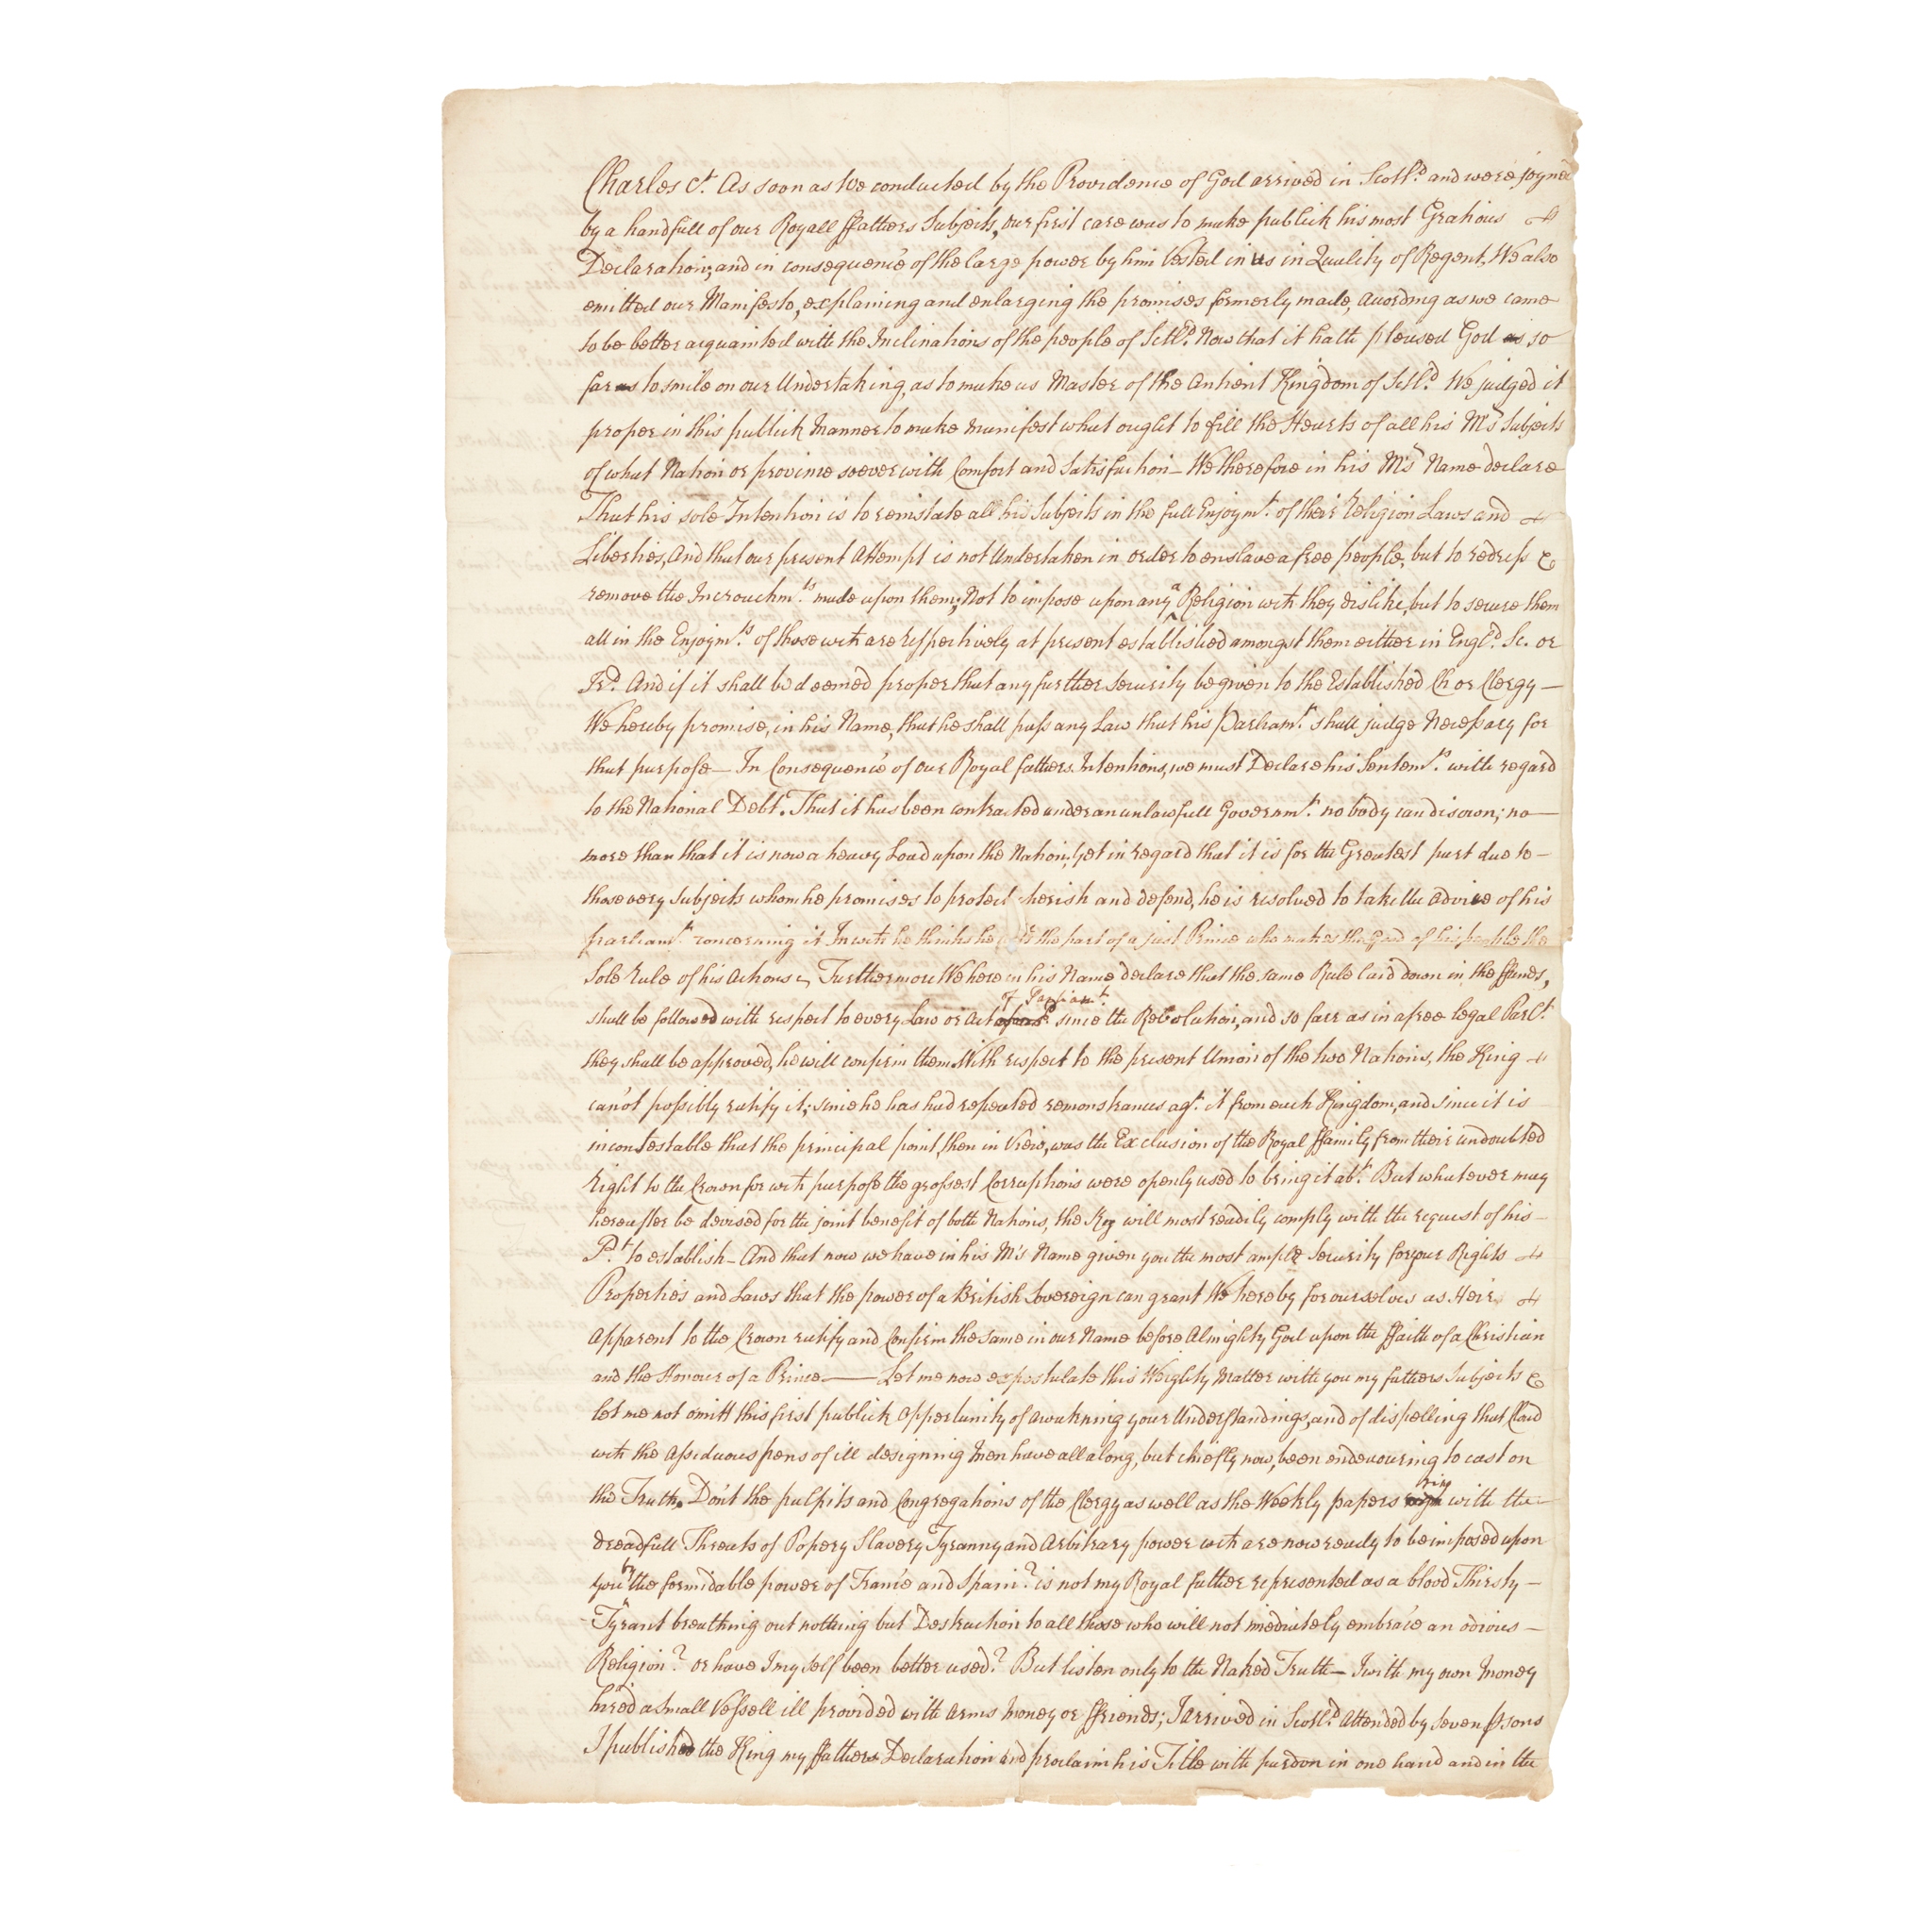 Charles &ct. As soon as We conducted by the Providence of God arrived in Scotl.d and were joyned
by a handfull of our Royall ffathers Subjects, our first care was to make publick his most Gratious
Declaration; and in consequence of the large power by him Vested in us in Quality of Regent, We also
emitted our Manifesto, explaining and enlarging the promises formerly made, according as we came
to be better acquainted with the Inclinations of the people of Scttl.d Now that it hath pleased God so
far to smile on our Undertaking, as to make us Master of the Antient Kingdom of Scttl.d We judged it
proper in this publick Manner to make manifest what ought to fill the Hearts of all his M's Subjects
of what Nation or province soever with Comfort and Satisfaction – We therefore in his M's Name declare
That his sole Intention is to reinstate all his Subjects in the full Enjoym.t of their Religion Laws and
Liberties, And that our present Attempt is not Undertaken in order to enslave a free people, but to redress &
remove the Incroachm.ts made upon them; Not to impose upon any a Religion wch they dislike, but to secure them
all in the Enjoym.ts of those wch are respectively at present established amongst them either in Engl.d Sc. or
Ir.d And if it shall be deemed proper that any further Security be given to the Established Ch or Clergy –
We hereby promise, in his Name, that he shall pass any Law that his Parliam.t shall judge Necessary for
that purpose – In Consequence of our Royal fathers Intentions, we must Declare his Sentem.ts with regard
to the National Debt. That it has been contracted under an unlawfull Governm.t no body can disown; no –
more than that it is now a heavy Load upon the Nation; yet in regard that it is for the Greatest part due to –
those very Subjects whom he promises to protect cherish and defend, he is resolved to take the Advice of his
parliam.t concerning it In wch he thinks he acts the part of a just Prince who makes the Good of his people the
Sole Rule of his Actions, Furthermore We here in his Name declare that the same Rule laid down in the ffunds,
shall be followed with respect to every Law or Act of Parliam.t since the Revolution, and so farr as in a free legal Parl.t
they shall be approved, he will confirm them. With respect to the present Union of the two Nations, the King
can'ot possibly ratify it; since he has had repeated remonstrances ag.t it from each Kingdom, and since it is
incontestable that the principal point, then in View, was the Exclusion of the Royal ffamily from their undoubted
Right to the Crown for wch purpose the grossest Corruptions were openly used to bring it ab.t But whatever may
hereafter be devised for the joint benefit of both Nations, the Kg will most readily comply with the request of his –
P.t to establish – And that now we have in his M's Name given you the most ample Security for your Rights
Properties and Laws that the power of a British Sovereign can grant We hereby for ourselves as Heir
Apparent to the Crown ratify and Confirm the same in our Name before Almighty God upon the ffaith of a Christian
and the Honour of a Prince — Let me now expostulate this Weighty Matter with you my fathers Subjects &
let me not omitt this first publick opportunity of awakning your Understandings, and of dispelling that Cloud
wch the Assiduous pens of ill designing Men have all along, but chiefly now, been endeavouring to cast on
the Truth. Don't the pulpits and Congregations of the Clergy as well as the Weekly papers ring with the –
dreadfull Threats of Popery Slavery Tyranny and Arbitrary power wch are now ready to be imposed upon
you by the formidable power of France and Spain? is not my Royal father represented as a blood Thirsty –
Tyrant breathing out nothing but Destruction to all those who will not imediately embrace an odious –
Religion? or have I my self been better used? But listen only to the Naked Truth – I with my own Money
hired a small Vessell ill provided with Arms Money or ffriends; I arrived in Scotl.d Attended by Seven psons
I published the King my ffathers Declaration and proclaim his Title with pardon in one hand and in the